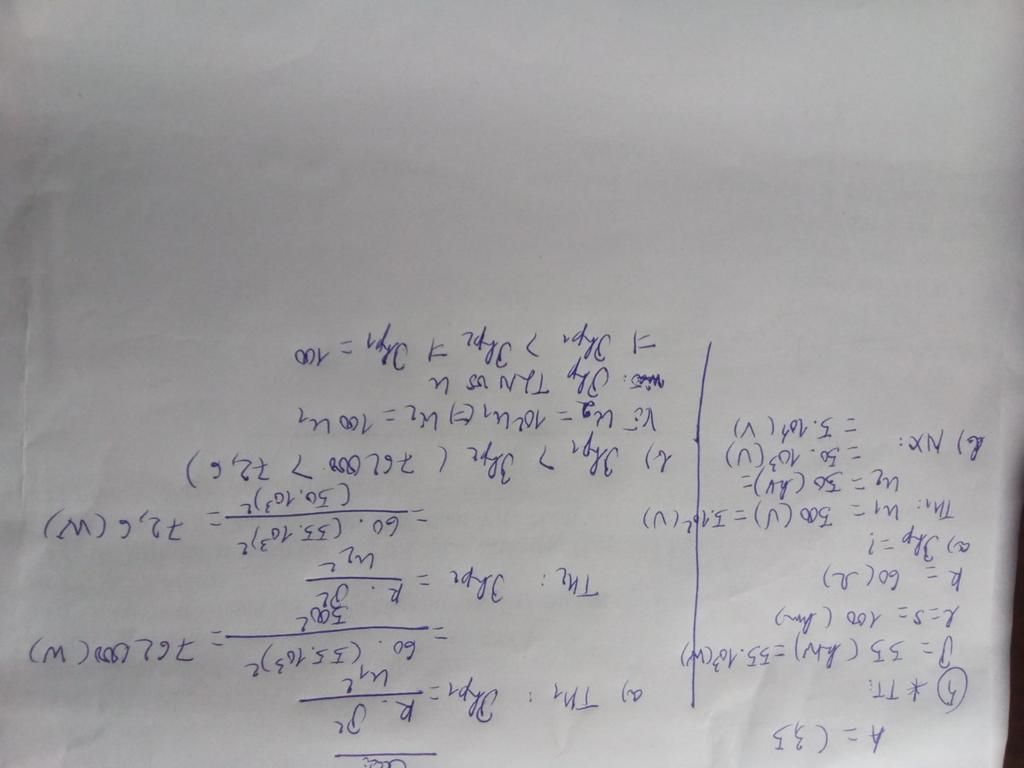 A = (33
5) * TT:
P = 33 (kW) = 33.10³ (W)
l = s = 100 (km)
R = 60 (Ω)
a) Php = ?
TH1: U1 = 300 (V) = 3.10² (V)
U2 = 30 (kV) =
= 30.10³ (V)
= 3.10⁴ (V)
b) NX:
a) TH1: Php1 = R.P² / U1²
= 60.(33.10³)² / 300² = 726000 (W)
TH2: Php2 = R.P² / U2²
= 60.(33.10³)² / (30.10³)² = 72,6 (W)
b) Php1 > Php2 ( 726000 > 72,6 )
Vì U2 = 10²U1 (=) U2 = 100 U1
Php TLN vs U
=) Php1 > Php2 → Php1 = 100